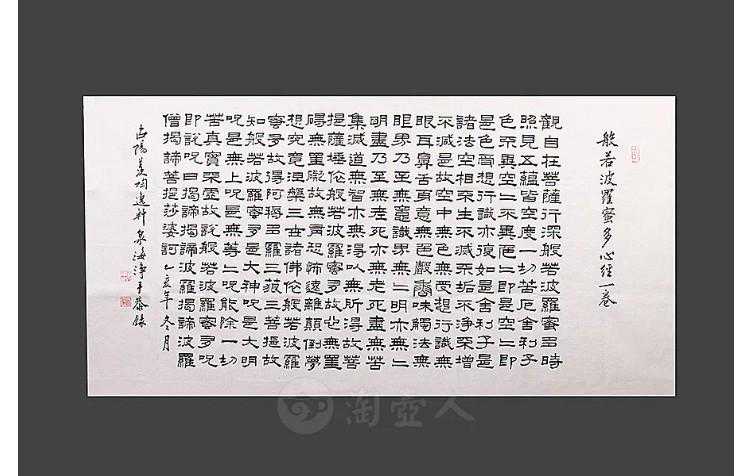 般若波羅蜜多心經一卷
觀自在菩薩行深般若波羅蜜多時
照見五蘊皆空度一切苦厄舍利子
色不異空空不異色色即是空空即
是色受想行識亦復如是舍利子是
諸法空相不生不滅不垢不淨不增
不減是故空中無色無受想行識無
眼耳鼻舌身意無色聲香味觸法無
眼界乃至無意識界無無明亦無無
明盡乃至無老死亦無老死盡無苦
集滅道無智亦無得以無所得故菩
提薩埵依般若波羅蜜多故心無罣
礙無罣礙故無有恐怖遠離顛倒夢
想究竟涅槃三世諸佛依般若波羅
蜜多故得阿耨多羅三藐三菩提故
知般若波羅蜜多是大神呪是大明
呪是無上呪是無等等呪能除一切
苦真實不虛故說般若波羅蜜多呪
即說呪曰揭諦揭諦波羅揭諦波羅
僧揭諦菩提莎婆訶 乙亥年冬月
海淨手恭錄
淘壺人